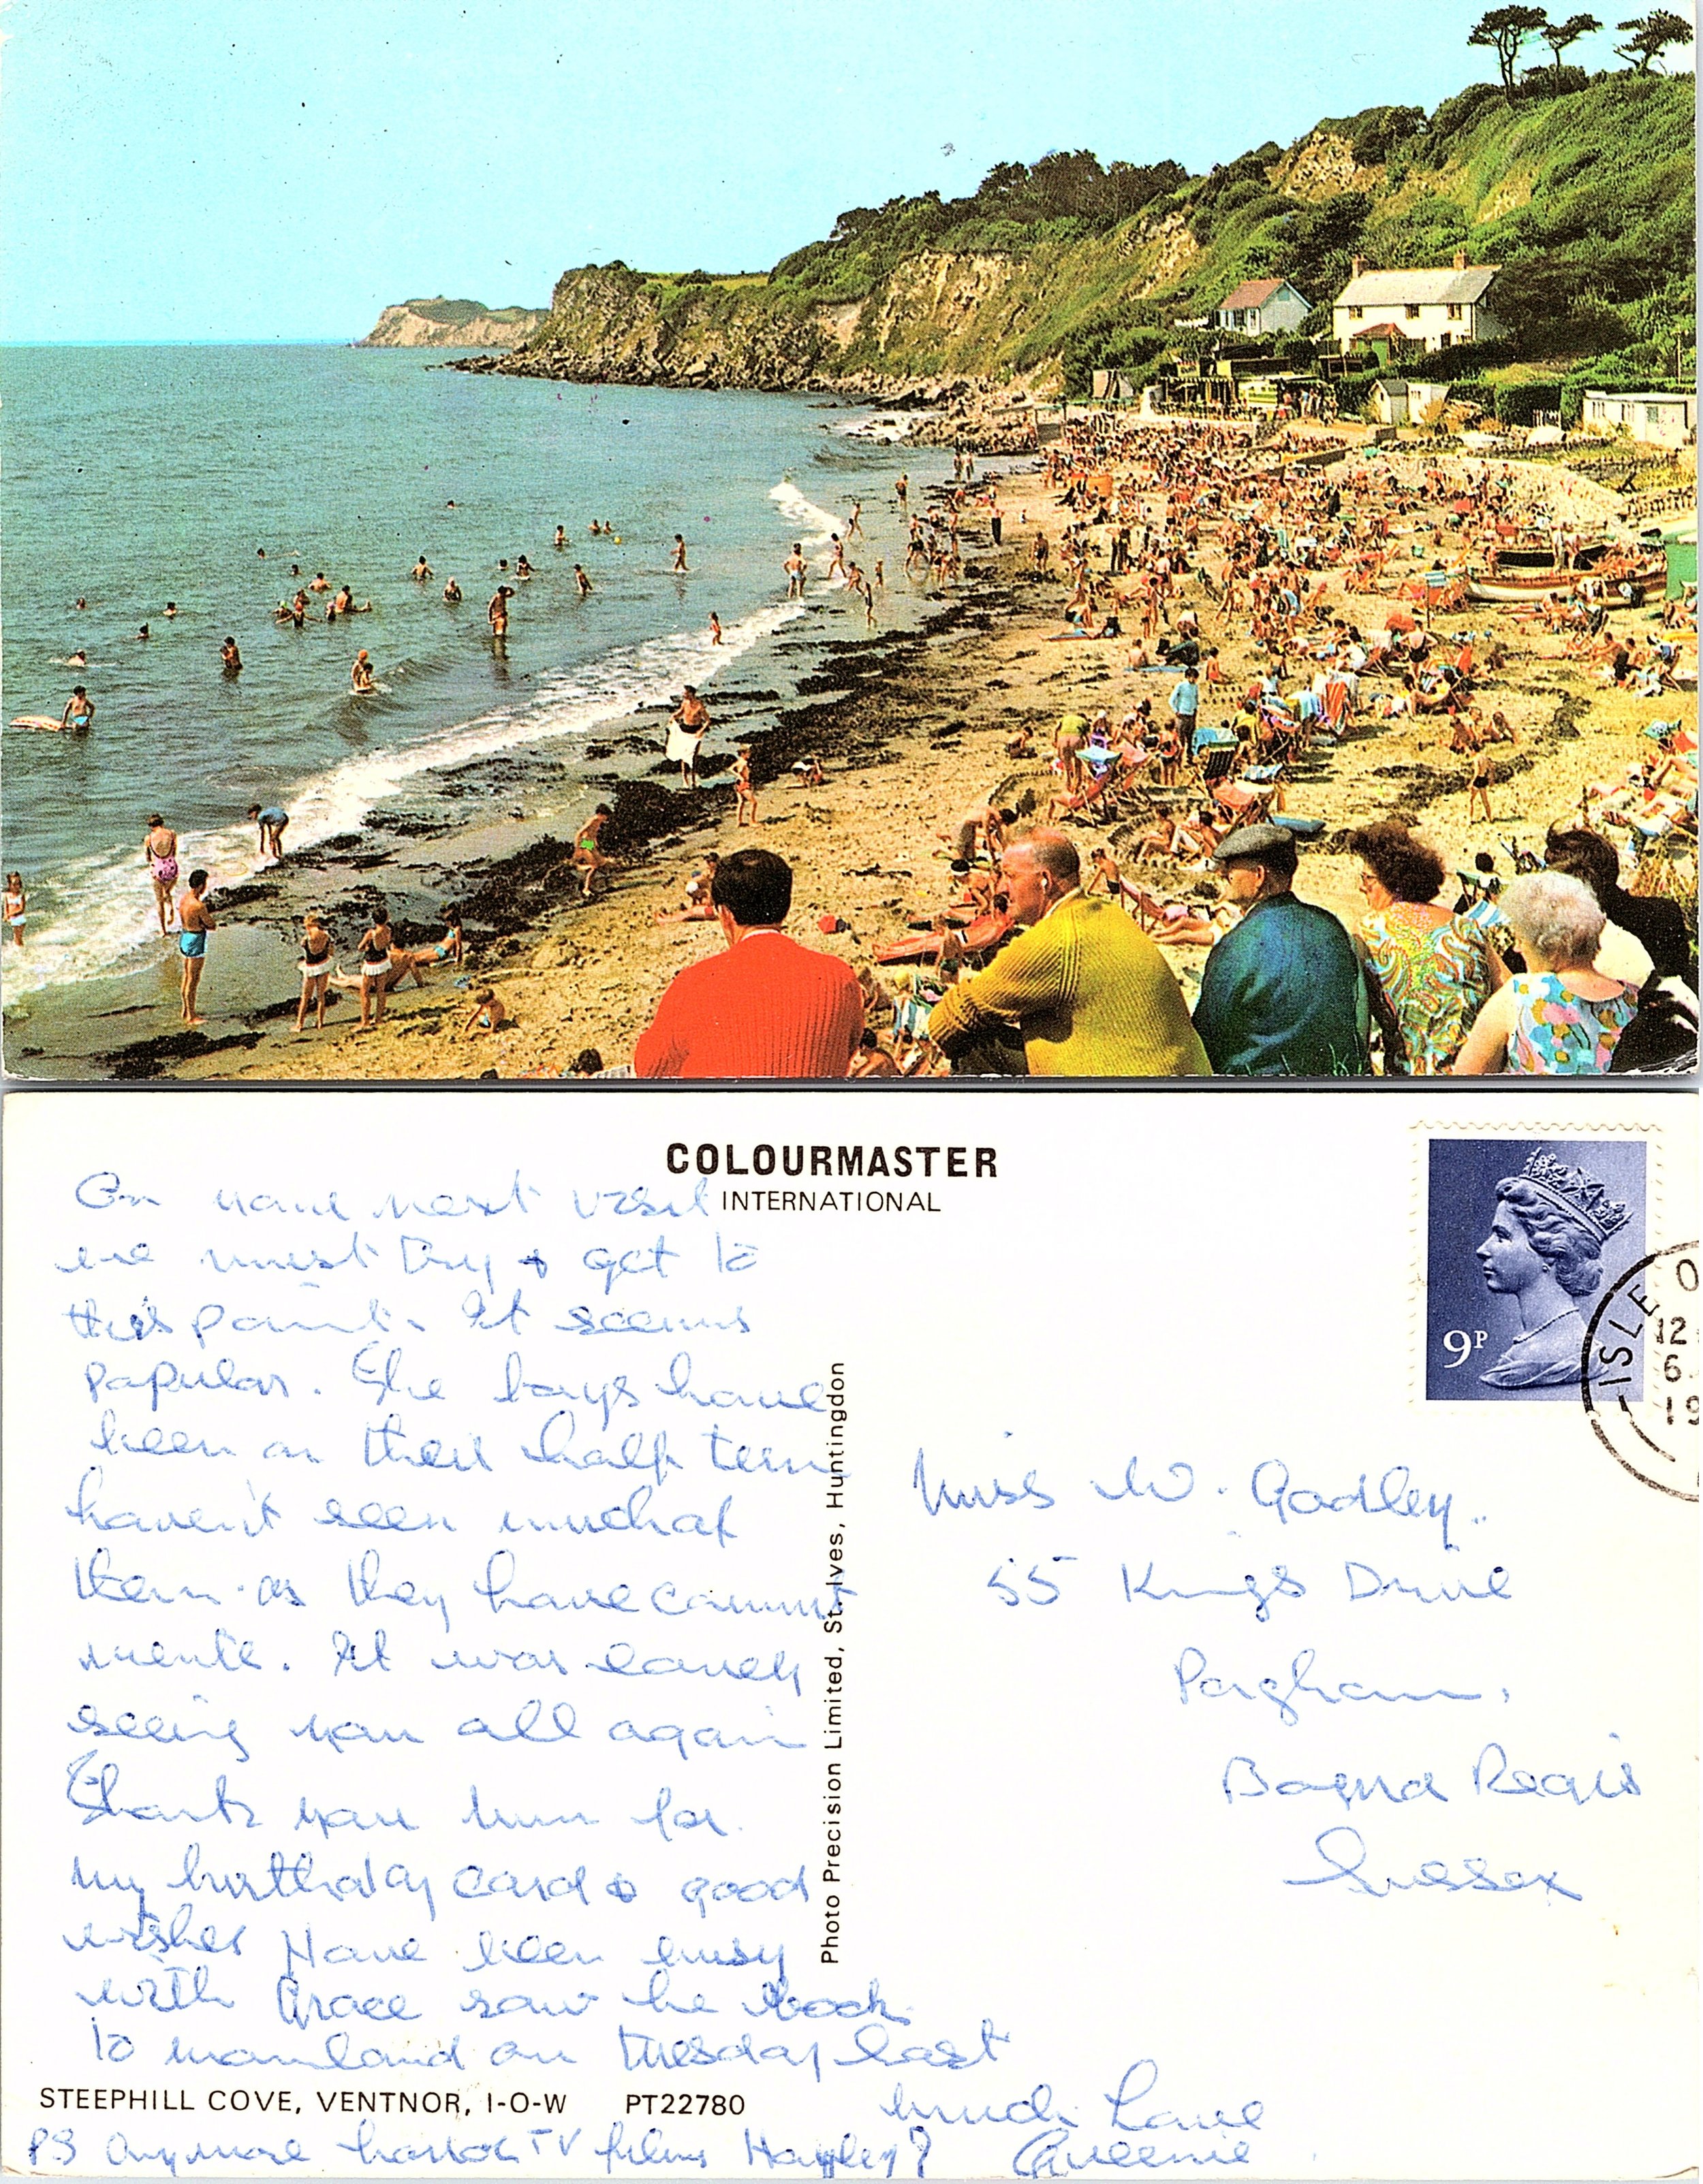 COLOURMASTER
INTERNATIONAL
On your next visit
we must try & get to
this point. It seems
popular. The boys have
been on their half term
haven't seen much of
them as they have commit
ments. It was lovely
seeing you all again
Thank you for
my birthday card & good
wishes Have been busy
with Grace saw her back
to mainland on Tuesday last
much Love
Queenie
PS Anymore horror TV films Hayley?
STEEPHILL COVE, VENTNOR, I-O-W PT22780
Photo Precision Limited, St. Ives, Huntingdon
9P
ISLE
12
6
19
Miss W. Godley.
55 Kings Drive
Pagham,
Bognor Regis
Sussex